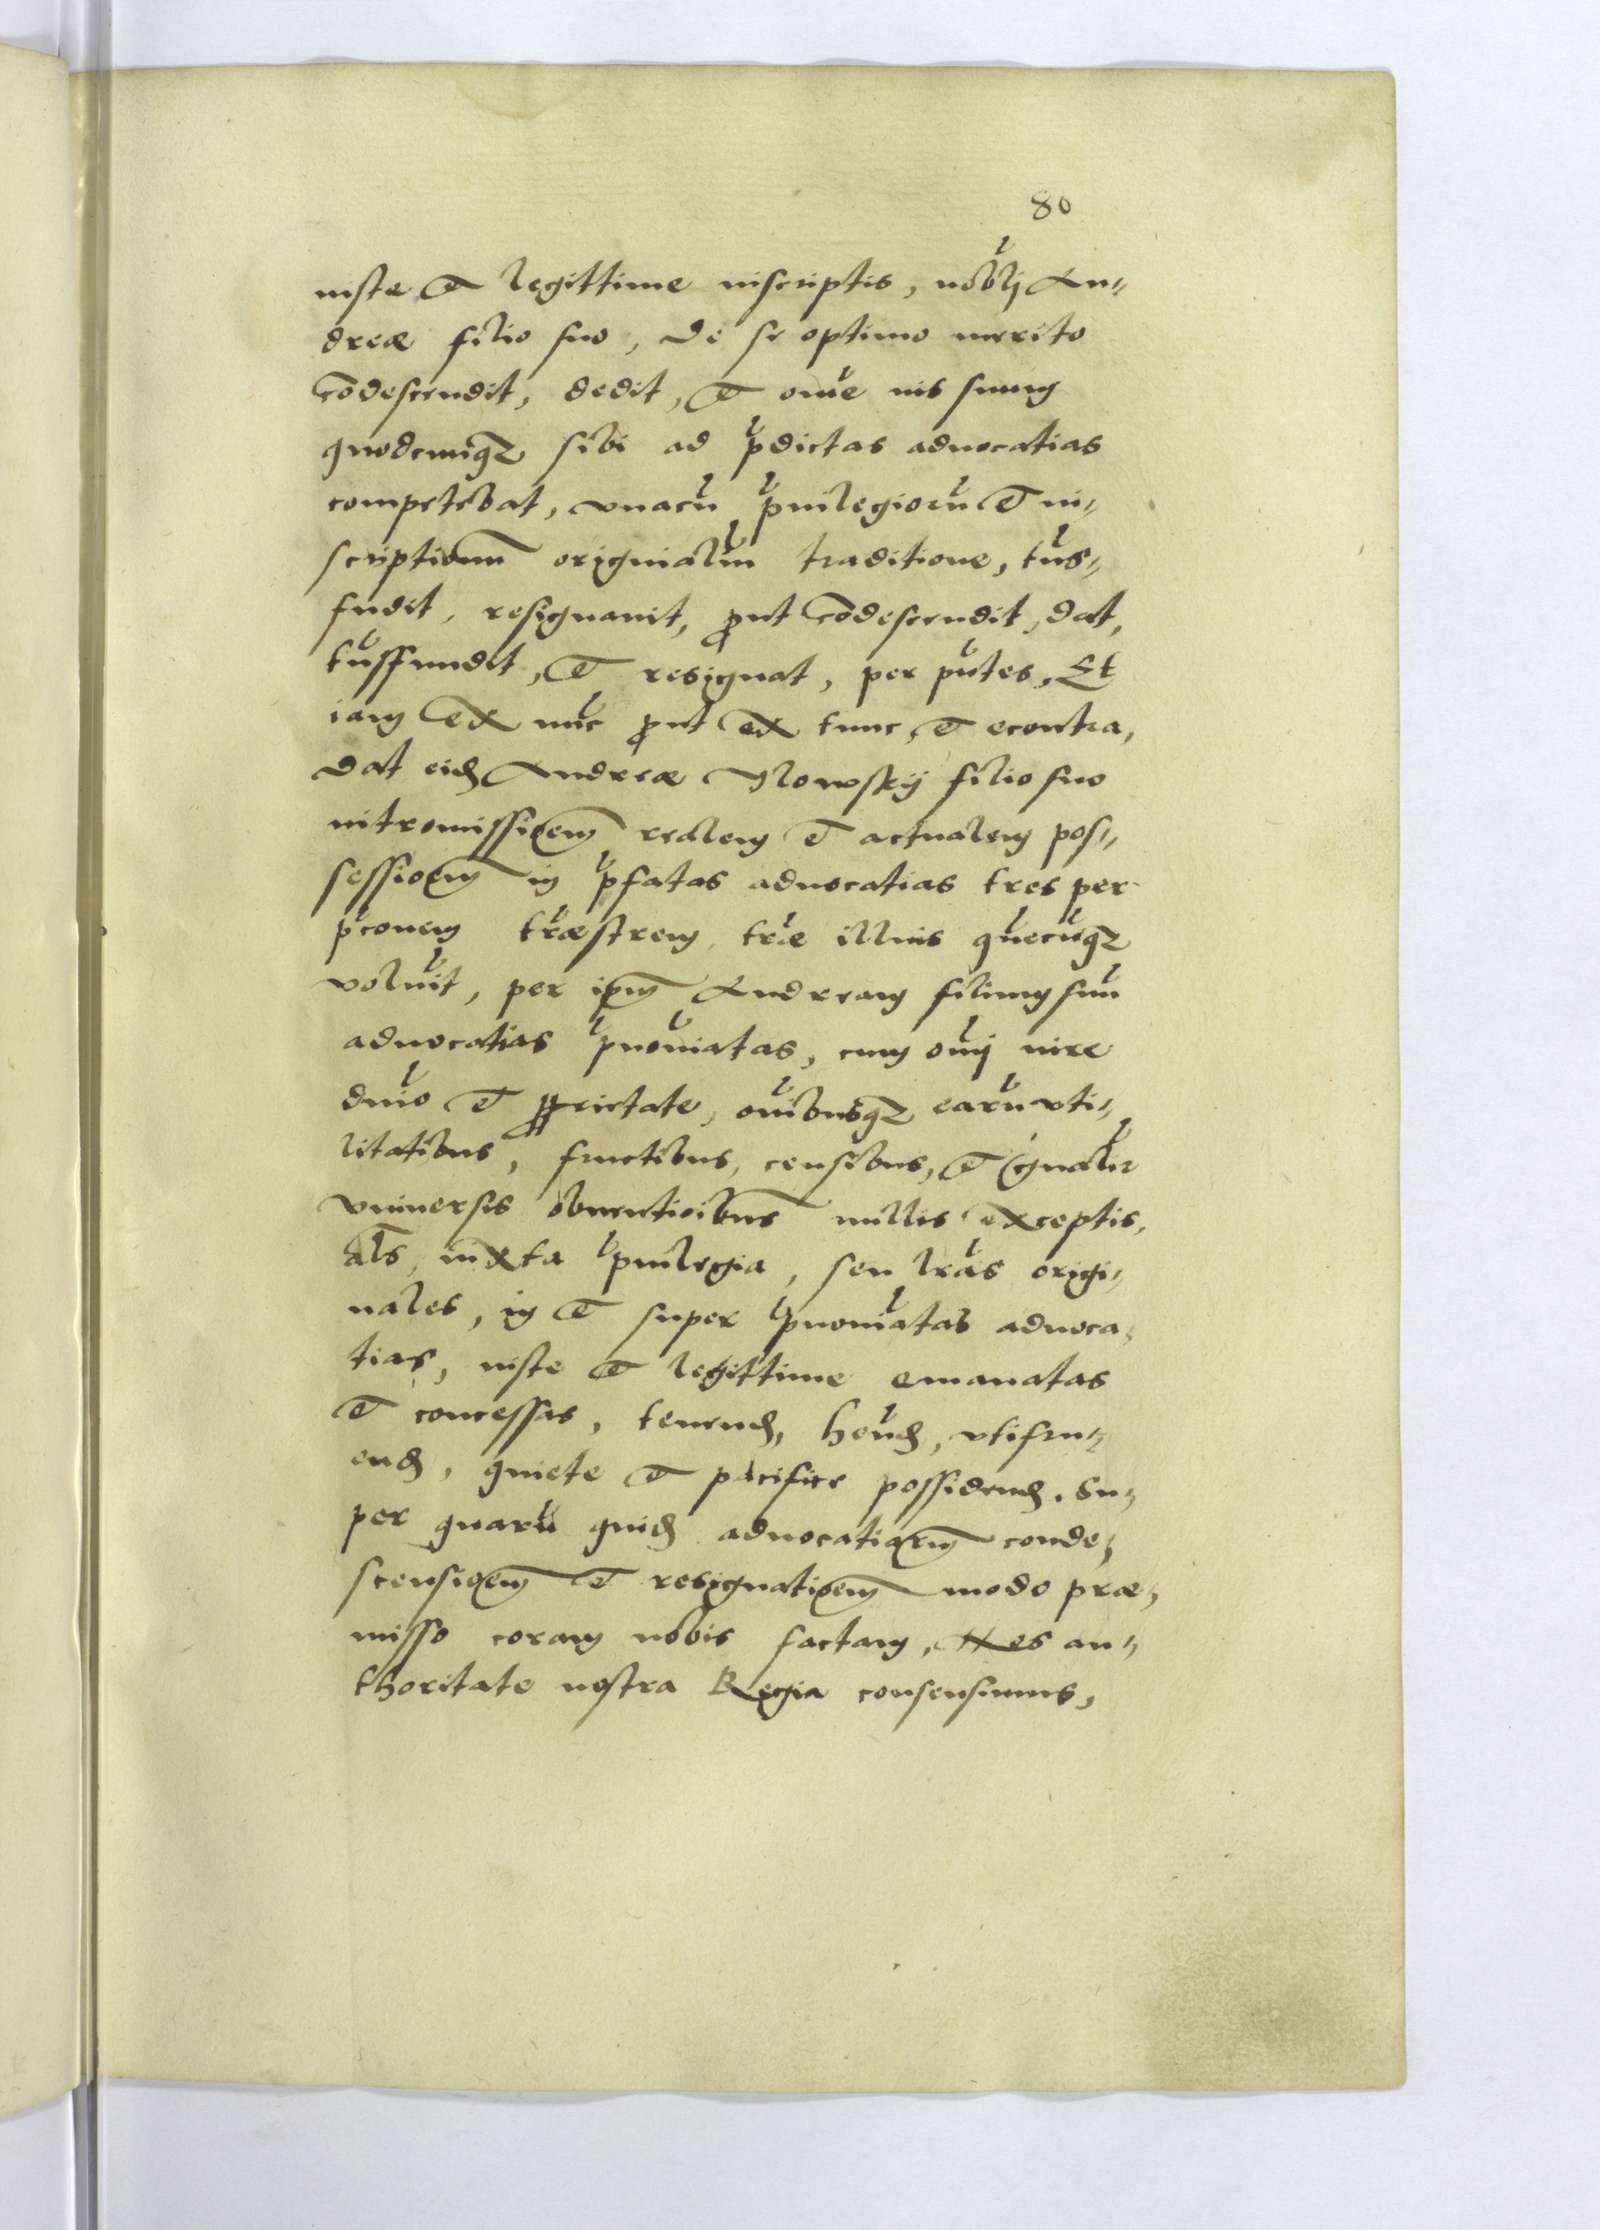 80
iuste et legittime inscriptis, nobli An„
dreæ filio suo, de se optimo merito
cōdescendit, dedit, et omne ius suum
quodcunqz sibi ad pdictas aduocatias
competebat, vnacu priuilegioru et in„
scriptionū originaliu traditione, trns„
fudit, resignauit, prout cōdescendit, dat,
trnsfundit, et resignat, per pntes, Et
iam ex nuc prout ex tunc, et econtra,
dat eid Andreæ Ylowskÿ filio suo
intromissioem realem et actualem pos„
sessioem in pfatas aduocatias tres per
pconem trræstrem, trræ illius quecuqz
voluit, per ipm Andream filium suu
aduocatias pnoiatas, cum omj iure
dnio et pprietate, omibusqz earu vti„
litatibus, fructibus, censibus, et gnalir
vniuersis obuentioibus nullis exceptis,
als, iuxta priuilegia, seu lras origi„
nales, in et super pnoiatas aduoca„
tias, iuste et legittime emanatas
et concessas, tenend, hend, vtifru„
end, quiete et pacifice possidend. Su„
per quaru quid aduocatiarum conde„
scensioem et resignatioem modo præ„
misso coram nobis factam, Nos au„
thoritate nostra Regia consensimus,